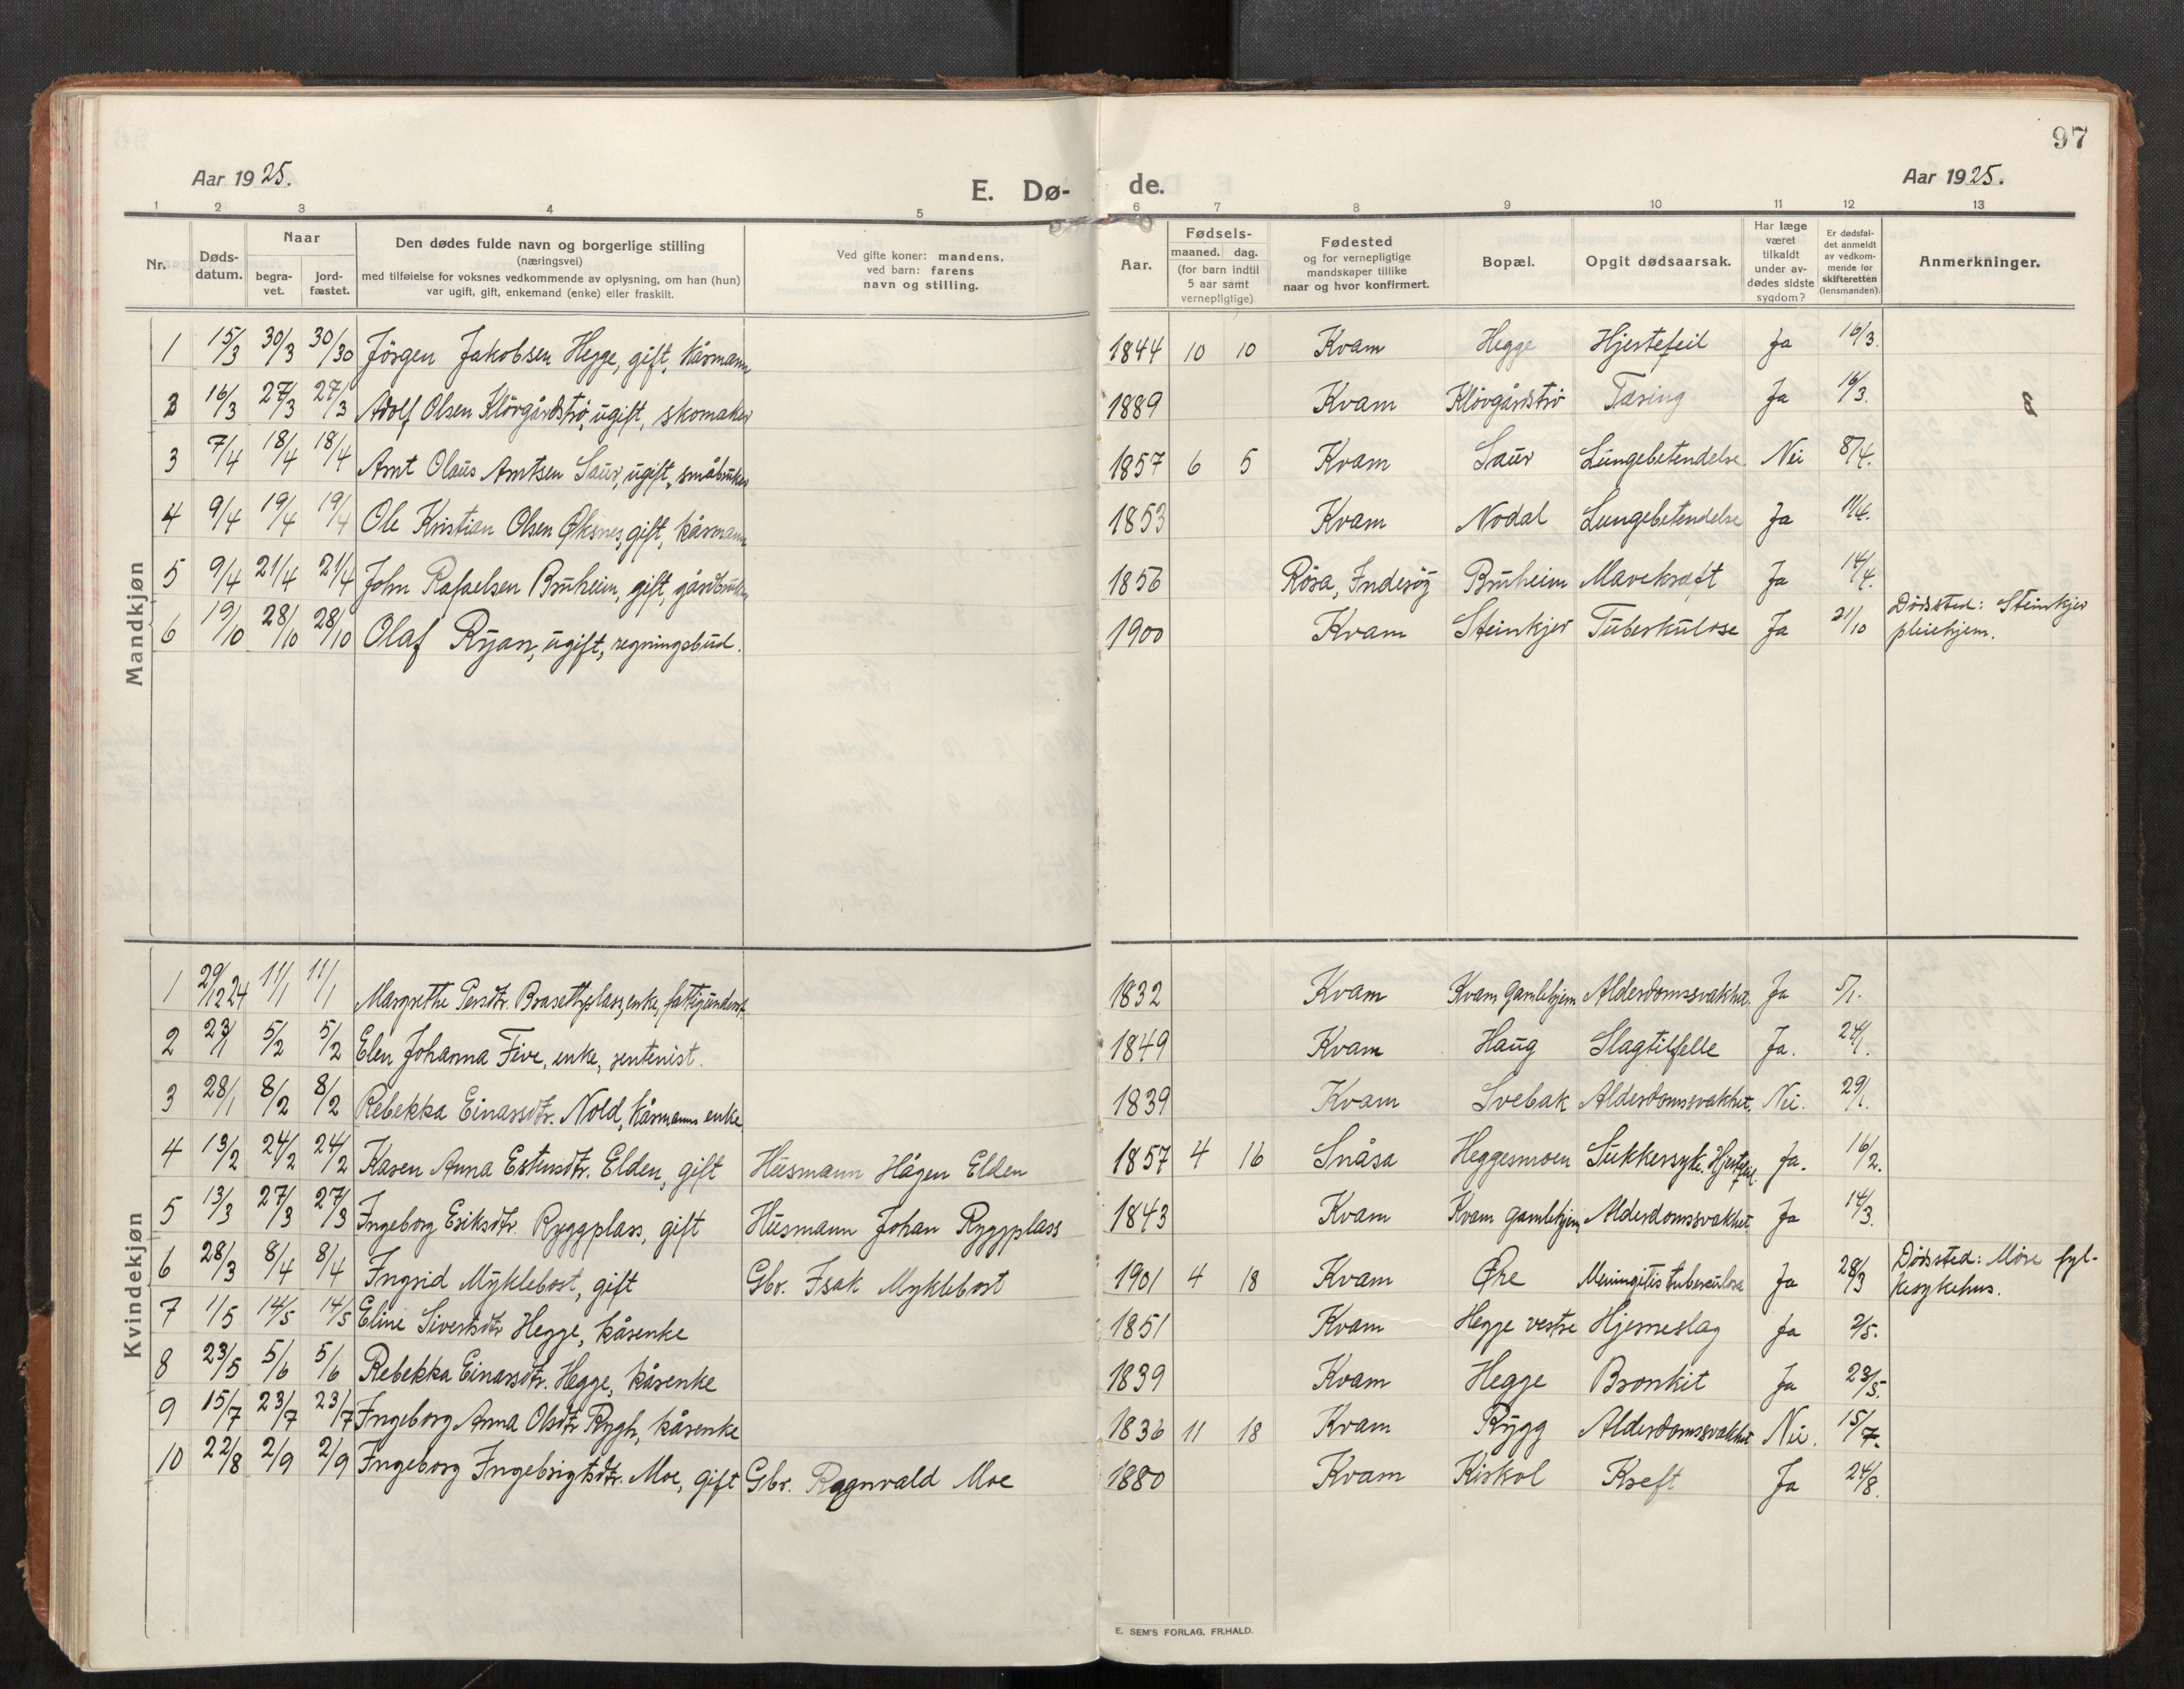 97
Aar 1925.
E. Dø-
de.
Aar 1925.
1 2 3 4 5 6 7 8 9 10 11 12 13
Nr.
Døds-
datum.
Naar
begra-
vet.
jord-
fæstet.
Den dødes fulde navn og borgerlige stilling
(næringsvei)
med tilføielse for voksnes vedkommende av oplysning, om han (hun)
var ugift, gift, enkemand (enke) eller fraskilt.
Ved gifte koner: mandens,
ved barn: farens
navn og stilling.
Aar.
Fødsels-
maaned. dag.
(for barn indtil
5 aar samt
vernepligtige)
Fødested
og for vernepligtige
mandskaper tillike
naar og hvor konfirmert.
Bopæl.
Opgit dødsaarsak.
Har læge
været
tilkaldt
under av-
dødes sidste
sygdom?
Er dødsfal-
det anmeldt
av vedkom-
mende for
skifteretten
(lensmanden).
Anmerkninger.
Mandkjøn
1 15/3 30/3 30/30 Jörgen Jakobsen Hegge, gift, kårmann 1844 10 10 Kvam Hegge Hjertefeil Ja 16/3.
2 16/3 27/3 27/3 Adolf Olsen Klövgårdströ, ugift, skomaker 1889 Kvam Klövgårdströ Tæring Ja 16/3.
3 7/4 18/4 18/4 Amt Olaus Amtsen Saur, ugift, småbruker 1857 6 5 Kvam Saur Lungebetendelse Nei 8/4.
4 9/4 19/4 19/4 Ole Kristian Olsen Øksnes, gift, kårmann 1853 Kvam Nodal Lungebetendelse Ja 11/4.
5 9/4 21/4 21/4 John Rafaelsen Bruheim, gift, gårdbruker 1856 Rösa, Inderöy Bruheim Mavekræft Ja 14/4.
6 19/10 28/10 28/10 Olaf Ryan, ugift, regningsbud. 1900 Kvam Steinkjer Tuberkulose Ja 21/10 Dödssted: Steinkjer
pleiehjem.
Kvindekjøn
1 29/12 24 11/1 11/1 Margrethe Persdtr. Brasethplass, enke, fattigunderst. 1832 Kvam Kvam Gamlehjem Alderdomssvakhet. Ja 5/1.
2 23/1 5/2 5/2 Elen Johanna Five, enke, rentenist. 1849 Kvam Haug Slagtilfelle Ja. 24/1.
3 28/1 8/2 8/2 Rebekka Einarsdtr. Nold, kårmanns enke 1839 Kvam Svebak Alderdomssvakhet. Nei. 29/1.
4 13/2 24/2 24/2 Karen Anna Estensdtr. Elden, gift Husmann Hågen Elden 1857 4 16 Snåsa Heggesmoen Sukkersyke. Hjertefeil. Ja. 16/2.
5 13/3 27/3 27/3 Ingeborg Eriksdtr. Ryggplass, gift Husmann Johan Ryggplass 1843 Kvam Kvam gamlehjem Alderdomssvakhet. Ja 14/3.
6 28/3 8/4 8/4 Ingrid Myklebost, gift Gbr. Isak Myklebost 1901 4 18 Kvam Øre Meningitis tuberculosa Ja 28/3 Dödssted: Möre fyl-
kesykehus.
7 1/5 14/5 14/5 Eline Sivertsdtr Hegge, kårenke 1851 Kvam Hegge vestre Hjerneslag Ja 2/5.
8 23/5 5/6 5/6 Rebekka Einarsdtr. Hegge, kårenke 1839 Kvam Hegge Bronkit Ja 23/5.
9 15/7 23/7 23/7 Ingeborg Anna Olsdtr Rygh, kårenke 1836 11 18 Kvam Rygg Alderdomssvakhet Nei. 15/7.
10 22/8 2/9 2/9 Ingeborg Ingebrigtsdtr. Moe, gift Gbr. Ragnvald Moe 1880 Kvam Kirkol Kreft Ja 24/8.
E. SEM'S FORLAG, FR.HALD.